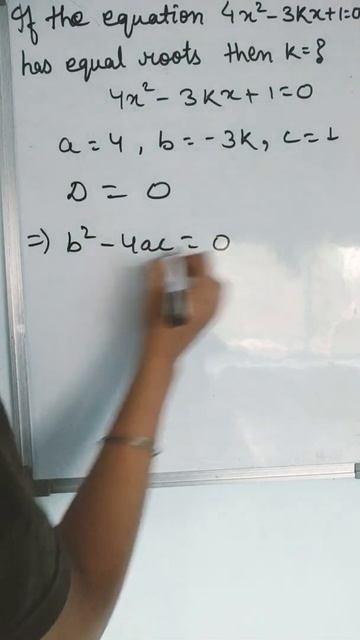 If the equation 4x²-3Kx+1=0
has equal roots then K=?
4x² - 3Kx + 1 = 0
a = 4, b = -3K, c = 1
D = 0
⇒ b² - 4ac = 0